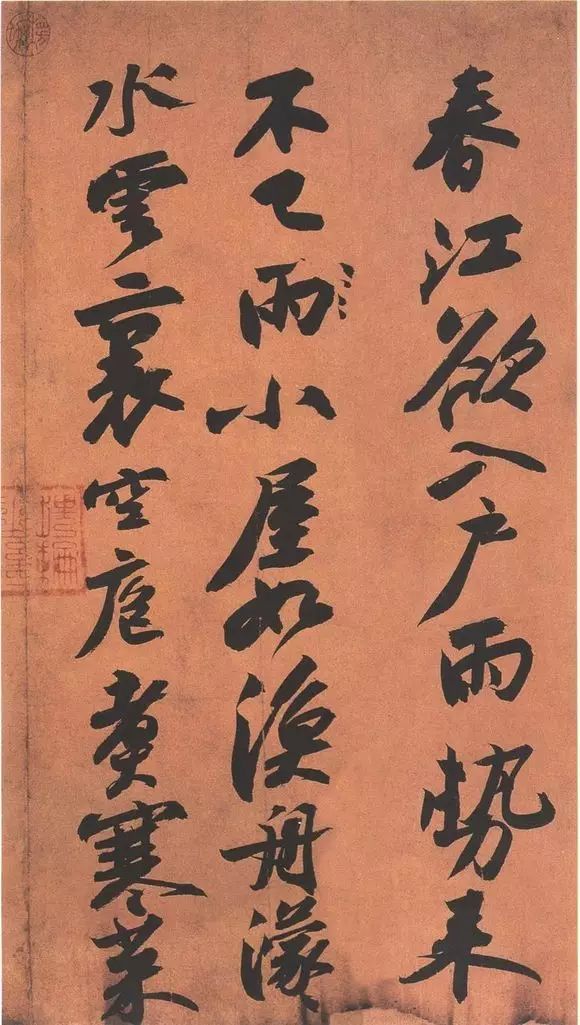 春江欲入户雨势来
不已雨小屋如渔舟濛
水云裏空庖煮寒菜